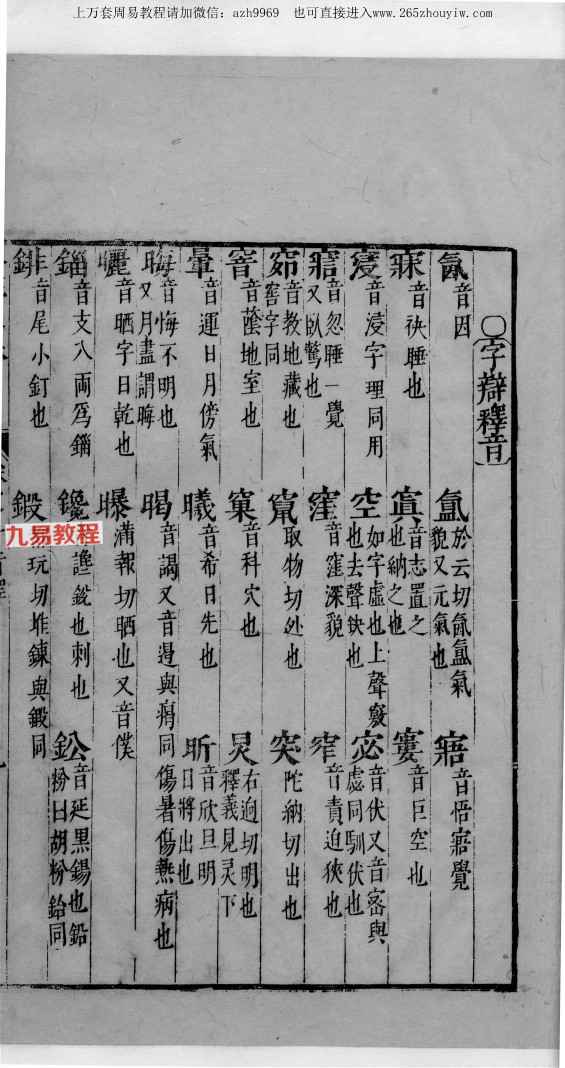 上万套周易教程请加微信：azh9969　也可直接进入www.265zhouyiw.com
〇字辯釋音
氤 音因 氲 於云切氤氲氣貌又元氣也 寤 音悟寤覺
音袂睡也 寘 音志置之也納之也 窶 音巨空也
音浸字理同用 空 如字虛也上聲竅也去聲缺也 宓 音伏又音密與虙同馴伏也
音忽睡一覺又臥驚也 窪 音窪深貌 窄 音責迫狹也
窌 音教地藏也窖字同 取物切処也 突 陀納切出也
窨 音蔭地室也 窠 音科穴也 炅 右逈切明也釋義見灵下
暈 音運日月傍氣 曦 音希日先也 昕 音欣旦明日將出也
晦 音悔不明也又月盡謂晦 暍 音謁又音遏與瘍同傷暑傷無病也
曬 音晒字日乾也 曝 滿報切晒也又音僕
錙 音支八兩爲錙 鑱 讒銳也刺也 鈆 音延黑錫也鉛粉曰胡粉鉛同
音尾小釘也 鍛 玩切堆鍊與鍛同
九易教程